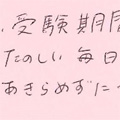 、受験期間
たのしい毎日
あきらめずに